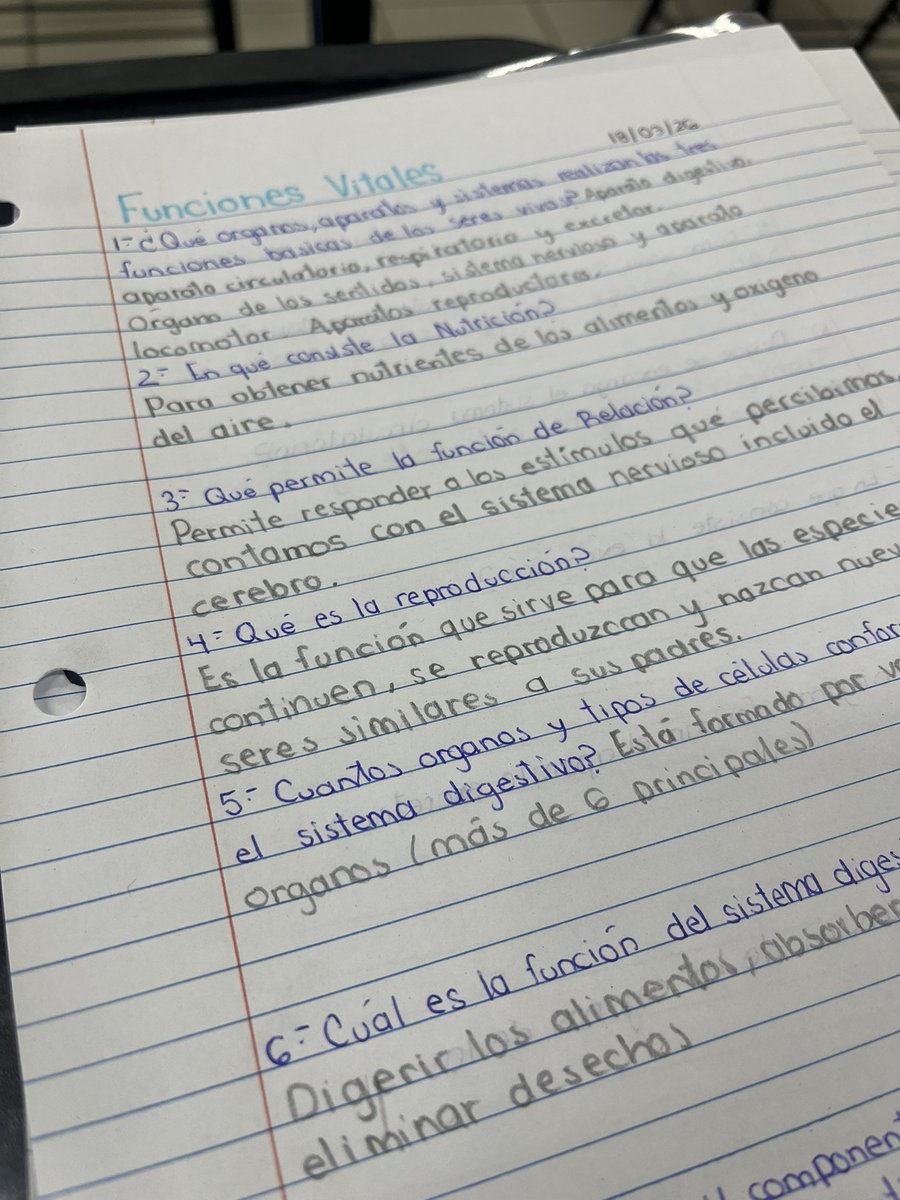 18/03/26
Funciones Vitales
1-¿Qué organos, aparatos y sistemas realizan las tres
funciones basicas de los seres vivos? Aparato digestivo.
aparato circulatorio, respiratorio y excretor.
Organo de los sentidos, sistema nervioso y aparato
locomotor. Aparatos reproductores.
2- En qué consiste la Nutrición?
Para obtener nutrientes de los alimentos y oxigeno
del aire.
3- Qué permite la función de Relación?
Permite responder a los estímulos qué percibimos,
contamos con el sistema nervioso incluido el
cerebro.
4- Qué es la reproducción?
Es la función que sirve para que las especie
continuen, se reproduzcan y nazcan nuev
seres similares a sus padres.
5- Cuantos organos y tipos de células confor
el sistema digestivo? Está formado por va
organos (más de 6 principales)
6- Cuál es la función del sistema diges
Digerir los alimentos, absorber
eliminar desechos
componen